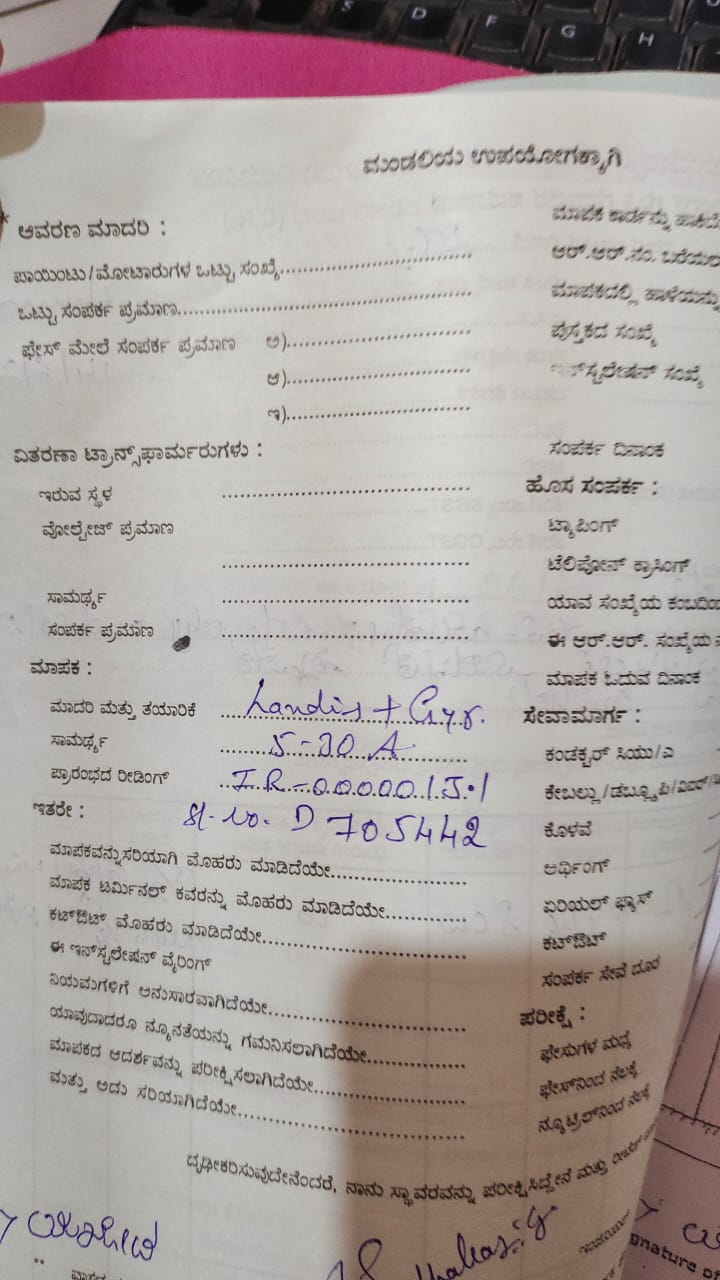 ಮಂಡಲಿಯ ಉಪಯೋಗಕ್ಕಾಗಿ
* ಆವರಣ ಮಾದರಿ :
ಪಾಯಿಂಟು/ಮೋಟಾರುಗಳ ಒಟ್ಟು ಸಂಖ್ಯೆ
ಒಟ್ಟು ಸಂಪರ್ಕ ಪ್ರಮಾಣ
ಫೇಸ್ ಮೇಲೆ ಸಂಪರ್ಕ ಪ್ರಮಾಣ ಅ)
ಆ)
ಇ)
ವಿತರಣಾ ಟ್ರಾನ್ಸ್‌ಫಾರ್ಮರುಗಳು :
ಇರುವ ಸ್ಥಳ
ವೋಲ್ಟೇಜ್ ಪ್ರಮಾಣ
ಸಾಮರ್ಥ್ಯ
ಸಂಪರ್ಕ ಪ್ರಮಾಣ
ಮಾಪಕ :
ಮಾದರಿ ಮತ್ತು ತಯಾರಿಕೆ Landis + Gyr.
ಸಾಮರ್ಥ್ಯ 5-30 A
ಪ್ರಾರಂಭದ ರೀಡಿಂಗ್ I R-0000015.1
ಇತರೇ : Sl. No. D 705442
ಮಾಪಕವನ್ನು ಸರಿಯಾಗಿ ಮೊಹರು ಮಾಡಿದೆಯೇ
ಮಾಪಕ ಟರ್ಮಿನಲ್ ಕವರನ್ನು ಮೊಹರು ಮಾಡಿದೆಯೇ
ಕಟ್‌ಔಟ್ ಮೊಹರು ಮಾಡಿದೆಯೇ
ಈ ಇನ್‌ಸ್ಟಲೇಷನ್ ವೈರಿಂಗ್
ನಿಯಮಗಳಿಗೆ ಅನುಸಾರವಾಗಿದೆಯೇ
ಯಾವುದಾದರೂ ನ್ಯೂನತೆಯನ್ನು ಗಮನಿಸಲಾಗಿದೆಯೇ
ಮಾಪಕದ ಆದರ್ಶವನ್ನು ಪರೀಕ್ಷಿಸಲಾಗಿದೆಯೇ
ಮತ್ತು ಅದು ಸರಿಯಾಗಿದೆಯೇ
ಮಾಪಕ ಕಾರ್ಡನ್ನು
ಆರ್.ಆರ್.ನಂ.
ಮಾಪಕದಲ್ಲಿ ಹಾಳೆಯನ್ನು
ಪುಸ್ತಕದ ಸಂಖ್ಯೆ
ಇನ್‌ಸ್ಟಲೇಷನ್ ಸಂಖ್ಯೆ
ಸಂಪರ್ಕ ದಿನಾಂಕ
ಹೊಸ ಸಂಪರ್ಕ :
ಟ್ಯಾಪಿಂಗ್
ಟೆಲಿಪೋನ್ ಕ್ರಾಸಿಂಗ್
ಯಾವ ಸಂಖ್ಯೆಯ
ಈ ಆರ್.ಆರ್. ಸಂಖ್ಯೆಯ
ಮಾಪಕ ಓದುವ ದಿನಾಂಕ
ಸೇವಾಮಾರ್ಗ :
ಕಂಡಕ್ಟರ್ ಸಿಯು/ಎ
ಕೇಬಲ್ಲು/ಡಬ್ಲ್ಯೂಪಿ/
ಕೊಳವೆ
ಅರ್ಥಿಂಗ್
ಏರಿಯಲ್ ಫ್ಯೂಸ್
ಕಟ್‌ಔಟ್
ಸಂಪರ್ಕ ಸೇವೆ ದೂರ
ಪರೀಕ್ಷೆ :
ಫೇಸುಗಳ ಮಧ್ಯೆ
ಫೇಸ್‌ನಿಂದ ನೆಲಕ್ಕೆ
ನ್ಯೂಟ್ರಲ್‌ನಿಂದ ನೆಲಕ್ಕೆ
ದೃಢೀಕರಿಸುವುದೇನೆಂದರೆ, ನಾನು ಸ್ಥಾವರವನ್ನು ಪರೀಕ್ಷಿಸಿದ್ದೇನೆ ಮತ್ತು
S
D
F
G
H